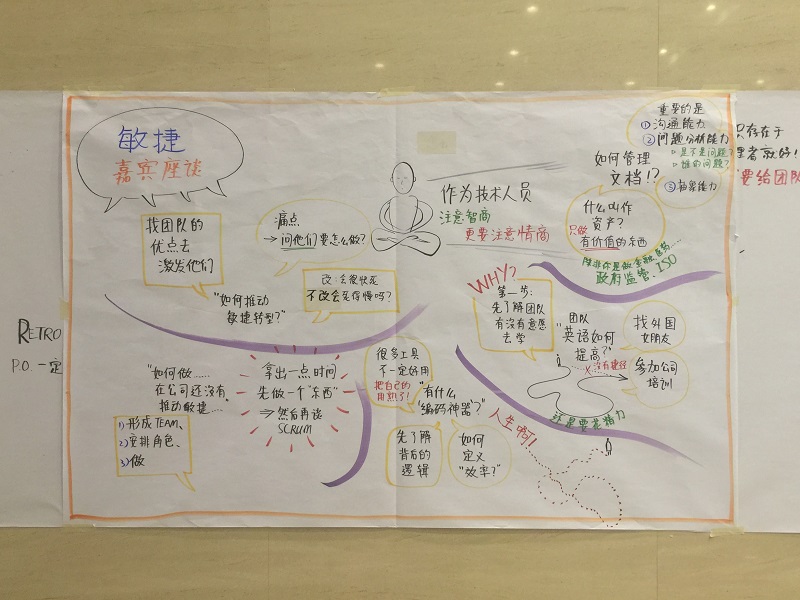 敏捷
嘉宾座谈
找团队的
优点去
激发他们
痛点
→ 问他们要怎么做?
"如何推动
敏捷转型?"
改:会很快死
不改会死得慢吗?
作为技术人员
注意智商
更要注意情商
重要的是
①沟通能力
②问题分析能力
▷是不是问题?
▷谁的问题?
③
能力
如何管理
文档!?
什么叫作
资产?
只做
有价值的东西
除非你是做金融医药....
政府监管.ISO
只存在于
要给团队
WHY?
第一步:
先了解团队
有没有意愿
去学
团队
"英语如何
提高?"
找外国
女朋友
没有捷径
参加公司
培训
还是要花精力
人生啊!
RETRO
P.O. 一定
"如何做......
在公司还没有
推动敏捷....."
1)形成TEAM、
2)安排角色、
3)做
拿出一点时间
先做一个"东西"
⇒ 然后再谈
SCRUM
很多工具
不一定好用
把自己的
用熟了!
"有什么
"编码神器"?"
先了解
背后的
逻辑
如何
定义
"效率?"